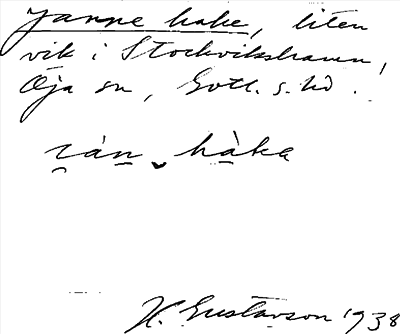 Janne hake, liten
vik i Stockvikshamn,
Öja sn, Gotl. s. hd.
hàka
H. Gustavson 1938